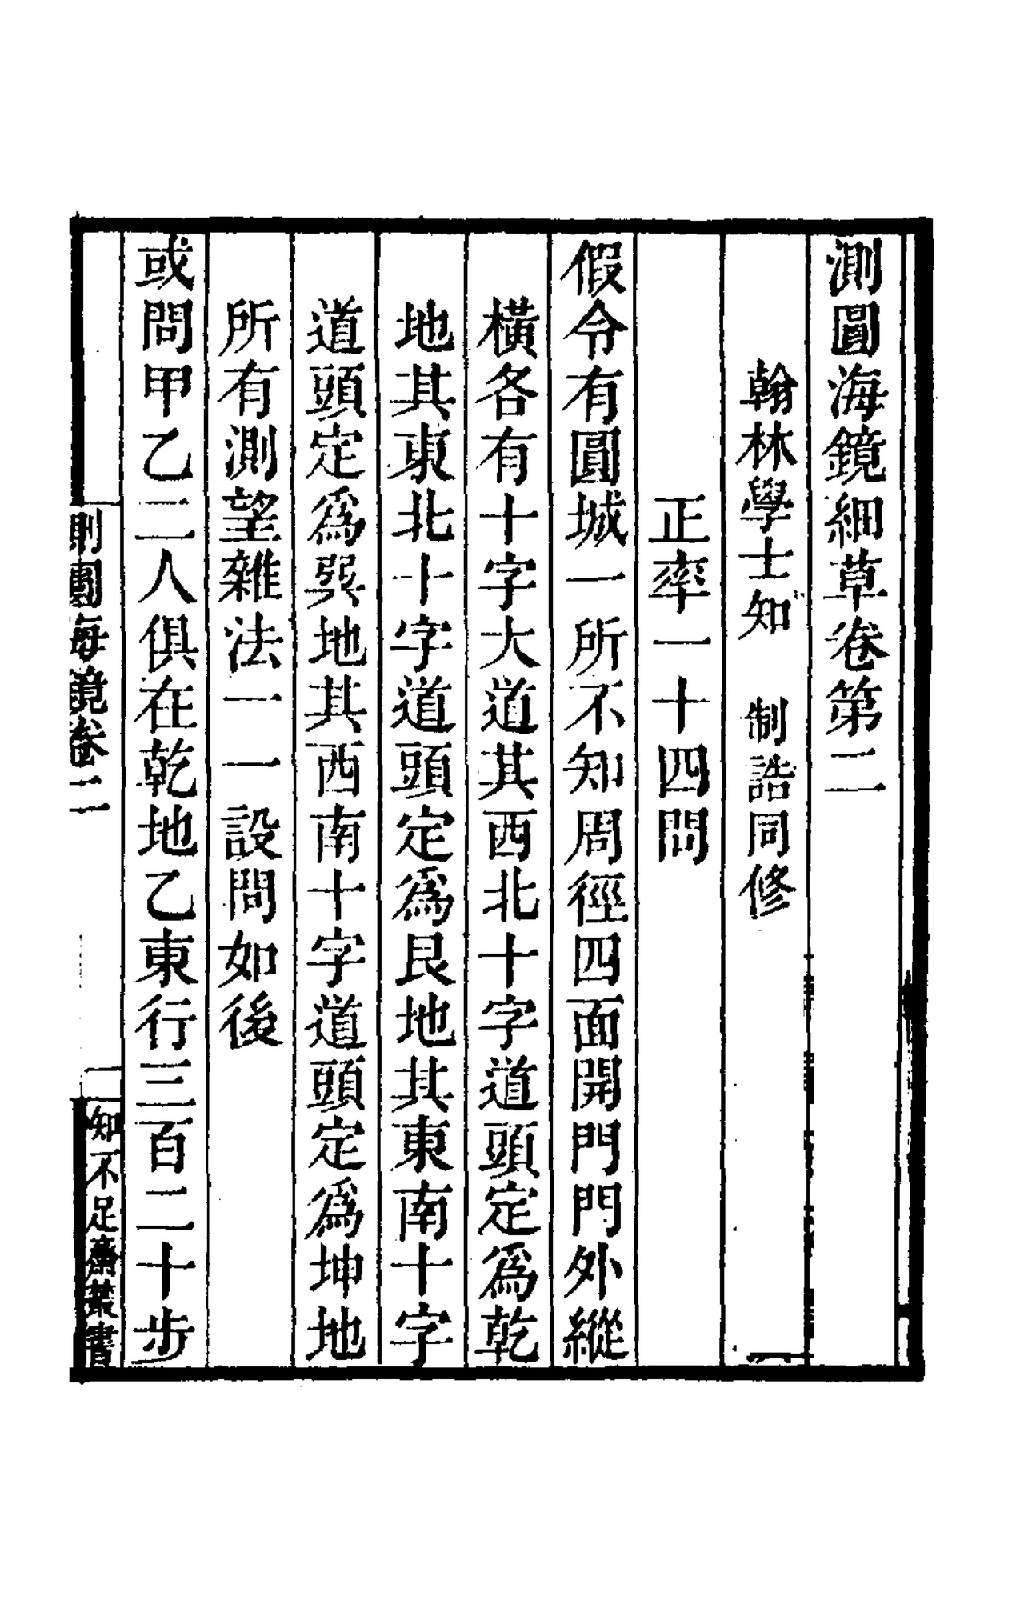 測圓海鏡細草卷第二
翰林學士知 制誥同修
正率一十四問
假令有圓城一所不知周徑四面開門門外縱
橫各有十字大道其西北十字道頭定爲乾
地其東北十字道頭定爲艮地其東南十字
道頭定爲巽地其西南十字道頭定爲坤地
所有測望雜法一一設問如後
或問甲乙二人俱在乾地乙東行三百二十步
測圓海鏡卷二
一
知不足齋叢書